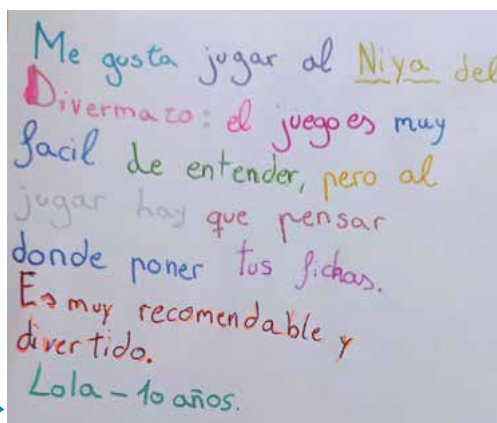 Me gusta jugar al Niya del
Divermazo: el juego es muy
facil de entender, pero al
jugar hay que pensar
donde poner tus fichas.
Es muy recomendable y
divertido.
Lola - 10 años.